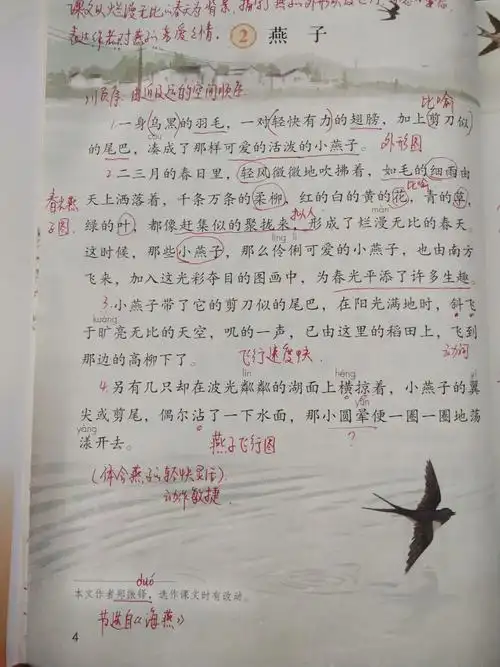 课文从烂漫无比的春天为背景
表达作者对燕子的喜爱之情。
2 燕子
顺序：由近及远的空间顺序
比喻
1 一身乌黑的羽毛，一对轻快有力的翅膀，加上剪刀似
còu
的尾巴，凑成了那样可爱的活泼的小燕子。
外形图
2 二三月的春日里，轻风微微地吹拂着，如毛的细雨由
比喻
天上洒落着，千条万条的柔柳，红的白的黄的花，青的草，
春天燕子图
拟人
màn
绿的叶，都像赶集似的聚拢来，形成了烂漫无比的春天。
líng lì
这时候，那些小燕子，那么伶俐可爱的小燕子，也由南方
飞来，加入这光彩夺目的图画中，为春光平添了许多生趣。
3 小燕子带了它的剪刀似的尾巴，在阳光满地时，斜飞
kuàng
于旷亮无比的天空，叽的一声，已由这里的稻田上，飞到
那边的高柳下了。
飞行速度快
动词
lín
héng
yì
4 另有几只却在波光粼粼的湖面上横掠着，小燕子的翼
yùn
尖或剪尾，偶尔沾了一下水面，那小圆晕便一圈一圈地荡
yàng
漾开去。
燕子飞行图
?
（体会燕子的轻快灵活）
动作敏捷
duó
本文作者郑振铎，选作课文时有改动。
节选自《海燕》
4